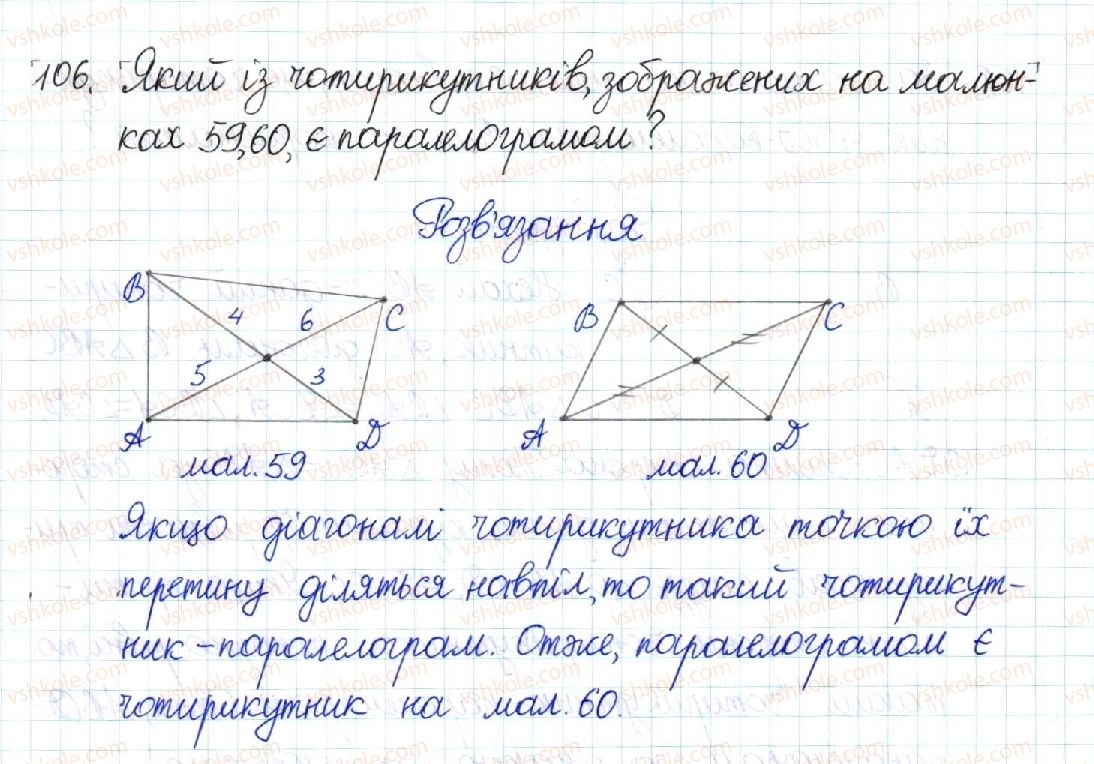 106. Який із чотирикутників, зображених на малюн-
ках 59,60, є паралелограмом?
Розв'язання
B 4 6 C 5 3 A D
мал. 59
B C A D
мал. 60
Якщо діагоналі чотирикутника точкою їх
перетину діляться навпіл, то такий чотирикут-
ник - паралелограм. Отже, паралелограмом є
чотирикутник на мал. 60.
vshkole.com